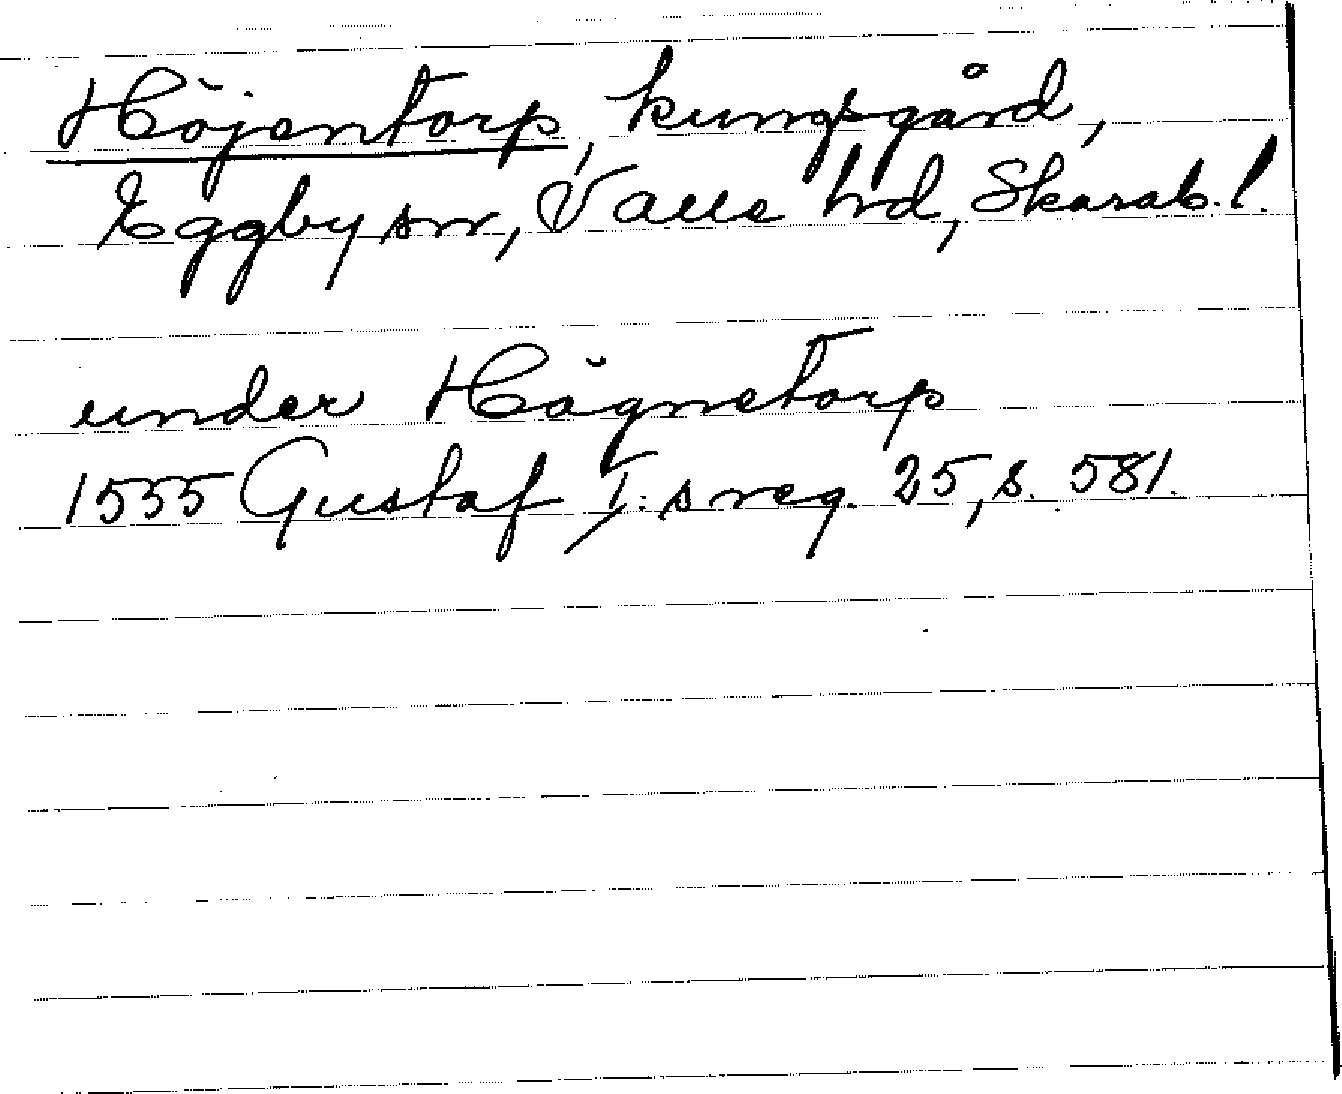 Höjentorp, kungsgård,
Eggby sn, Valle hd, Skarab. l.
under Högnetorp
1555 Gustaf I:s reg. 25, s. 581.